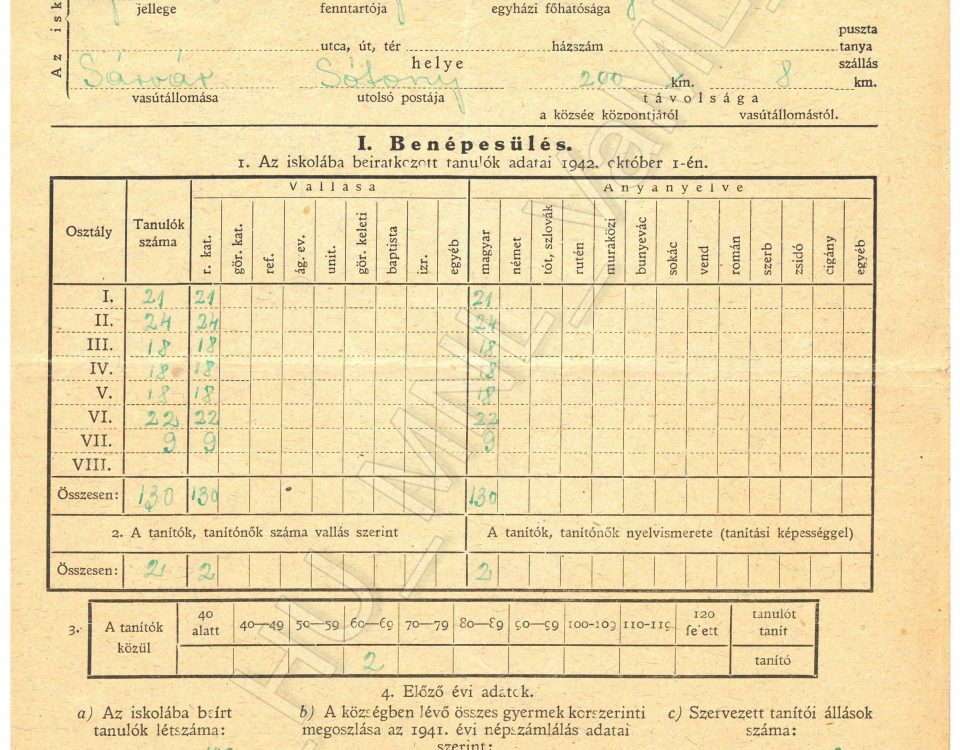 jellege fenntartója egyházi főhatósága 8
Az isk
puszta
utca, út, tér házszám tanya
helye szállás
Sárvár Sótony 200 km. 8 km.
vasútállomása utolsó postája távolsága
a község központjától vasútállomástól.
I. Benépesülés.
1. Az iskolába beiratkozott tanulók adatai 1942. október 1-én.
Osztály Tanulók száma Vallása Anyanyelve
r. kat. gör. kat. ref. ág. ev. unit. gör. keleti baptista izr. egyéb magyar német tót, szlovák rutén muraközi bunyevác sokác vend román szerb zsidó cigány egyéb
I. 21 21 21
II. 24 24 24
III. 18 18 18
IV. 18 18 18
V. 18 18 18
VI. 22 22 22
VII. 9 9 9
VIII.
Összesen: 130 130 130
2. A tanítók, tanítónők száma vallás szerint A tanítók, tanítónők nyelvismerete (tanítási képességgel)
Összesen: 2 2 2
3. A tanítók közül 40 alatt 40—49 50—59 60—69 70—79 80—89 90—99 100-109 110-119 120 felett tanulót tanít
2 tanító
4. Előző évi adatok.
a) Az iskolába beírt b) A községben lévő összes gyermek korszerinti c) Szervezett tanítói állások
tanulók létszáma: megoszlása az 1941. évi népszámlálás adatai száma:
szerint:
HU_MNL_VaML